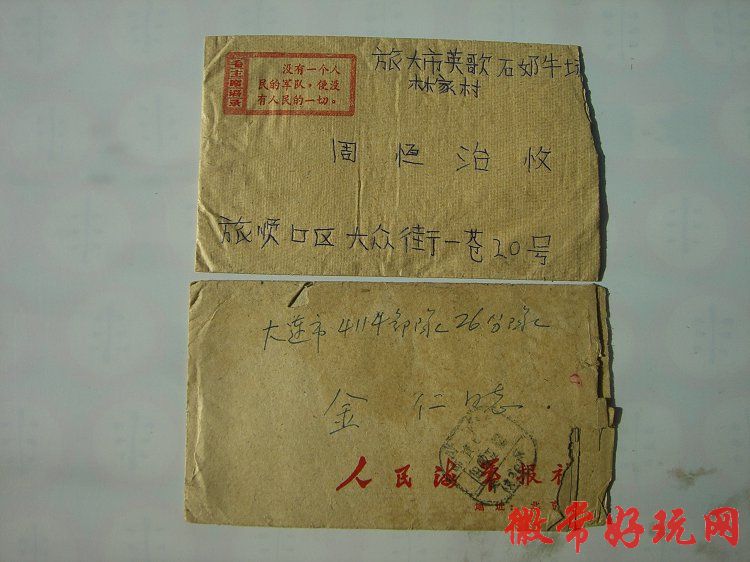 毛主席语录
没有一个人
民的军队，便没
有人民的一切。
旅大市英歌石奶牛场
林家村
周恒治收
旅顺口区大众街一巷20号
大连市 4114部队26分队
金仁同志
人民海军报
地址：北京
徽常好玩网